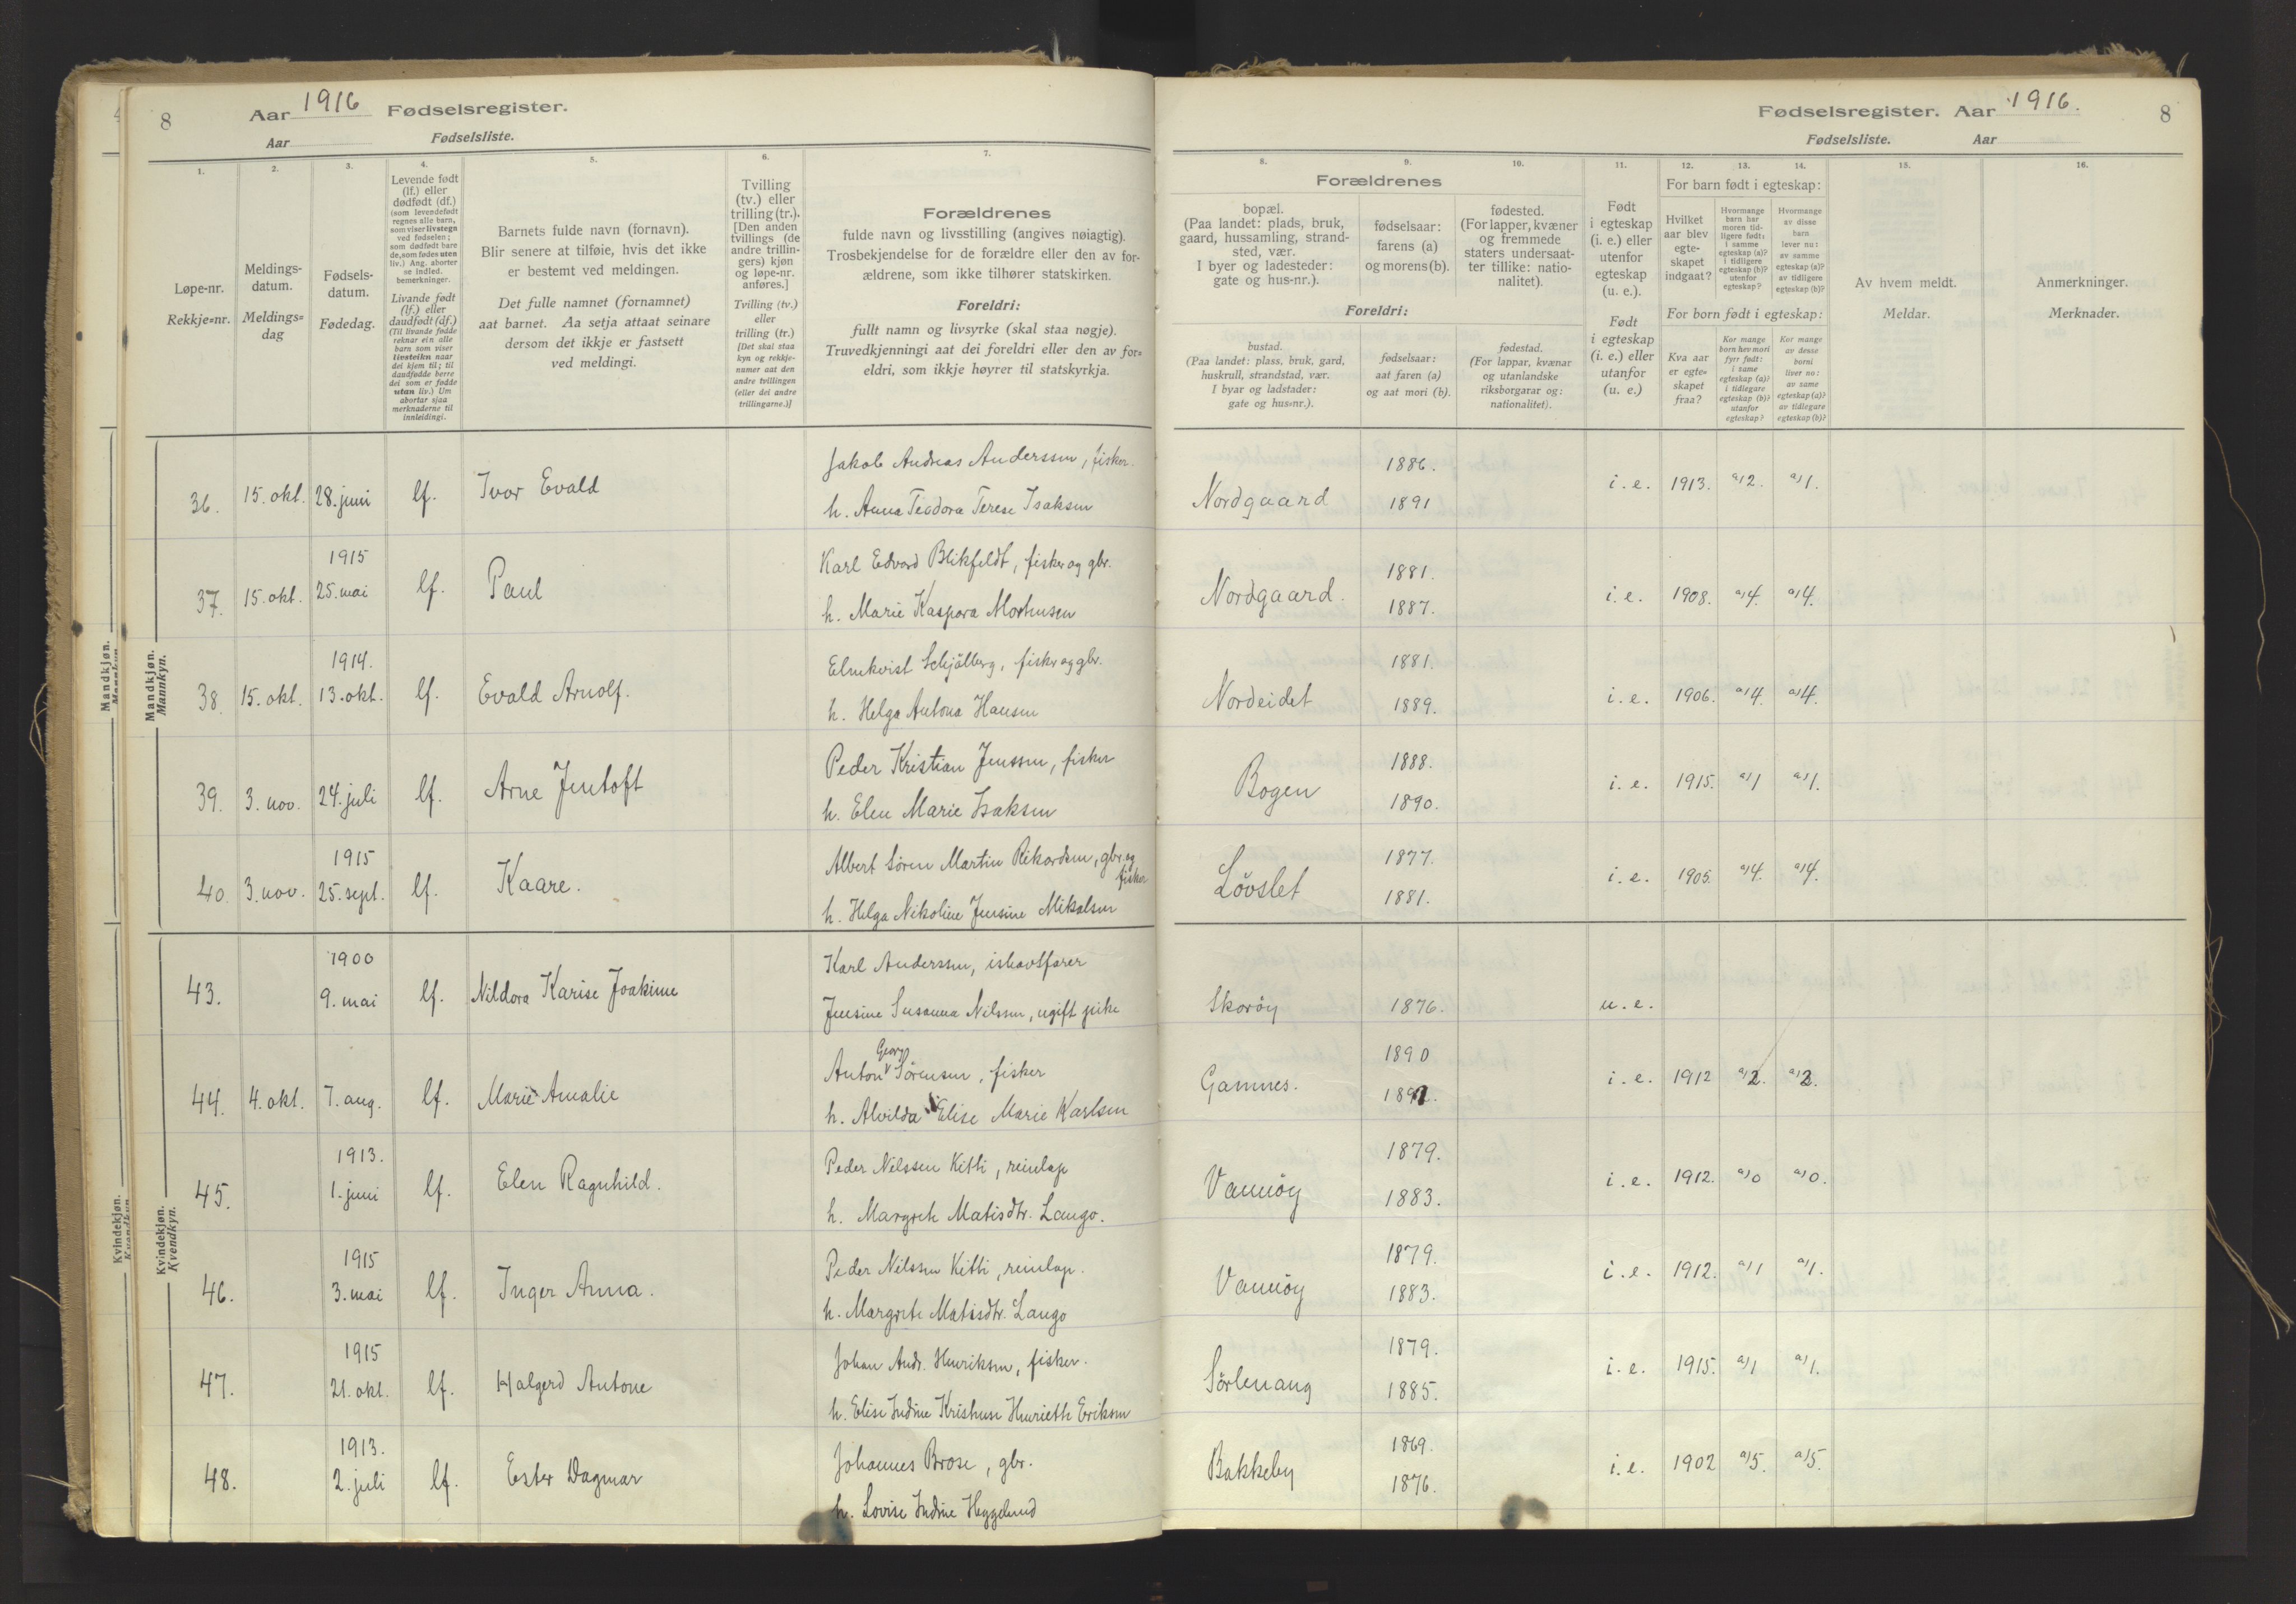 8
Aar 1916 Fødselsregister.
Aar Fødselsliste.
1.
2.
3.
4.
5.
6.
7.
Løpe-nr.
Rekkje=nr.
Meldings-
datum.
Meldings=
dag
Fødsels-
datum.
Fødedag.
Levende født
(lf.) eller
dødfødt (df.)
(som levendefødt
regnes alle barn,
som viser livstegn
ved fødselen;
som dødfødt bare
de, som fødes uten
liv.) Ang. aborter
se indled.
bemerkninger.
Livande født
(lf.) eller
daudfødt (df.)
(Til livande fødde
reknar ein alle
barn som viser
livsteikn naar
dei kjem til; til
daudfødde berre
dei som er fødde
utan liv.) Um
abortar sjaa
merknaderne til
innleidingi.
Barnets fulde navn (fornavn).
Blir senere at tilføie, hvis det ikke
er bestemt ved meldingen.
Det fulle namnet (fornamnet)
aat barnet. Aa setja attaat seinare
dersom det ikkje er fastsett
ved meldingi.
Tvilling
(tv.) eller
trilling (tr.).
[Den anden
tvillings (de
andre trillin-
gers) kjøn
og løpe-nr.
anføres.]
Tvilling (tv.)
eller
trilling (tr.)
[Det skal staa
kyn og rekkje-
numer aat den
andre tvillingen
(eller dei andre
trillingarne.)]
Forældrenes
fulde navn og livsstilling (angives nøiagtig).
Trosbekjendelse for de forældre eller den av for-
ældrene, som ikke tilhører statskirken.
Foreldri:
fullt namn og livsyrke (skal staa nøgje).
Truvedkjenningi aat dei foreldri eller den av for=
eldri, som ikkje høyrer til statskyrkja.
Mandkjøn.
Mannkyn.
36. 15. okt. 28. juni lf. Ivor Evald
Jakob Andreas Anderssen, fisker.
h. Anna Teodora Terese Isaksen
37. 15. okt. 1915 25. mai lf. Paul
Karl Edvard Blikfeldt, fisker og gbr.
h. Marie Kaspara Mortensen
38. 15. okt. 1914. 13. okt. lf. Evald Arnolf.
Elmkvist Schjölberg, fisker og gbr.
h. Helga Antona Hansen
39. 3. nov. 24. juli lf. Arne Jentoft
Peder Kristian Jenssen, fisker
h. Elen Marie Isaksen
40. 3. nov. 1915 25. sept. lf. Kaare.
Albert Sören Martin Rikardsen, gbr. og
fisker
h. Helga Nikoline Jensine Mikalsen
Kvindekjøn.
Kvendkyn.
43. 1900 9. mai lf. Nildora Karise Joakime
Karl Anderssen, ishavsfarer
Jensine Susanna Nilssen, ugift pike
44. 4. okt. 7. aug. lf. Marie Amalie
Georg
Anton Sörensen, fisker
h. Alvilda Elise Marie Karlsen
45. 1913. 1. juni lf. Elen Ragnhild.
Peder Nilssen Kitti, reinlap
h. Margrete Matisdtr. Lango.
46. 1915 3. mai lf. Inger Anna.
Peder Nilssen Kitti, reinlap.
h. Margrete Matisdtr. Lango
47. 1915 21. okt. lf. Halgerd Antone
Johan Andr. Henriksen, fisker.
h. Elise Indine Kristense Henriette Eriksen
48. 1913. 2. juli lf. Ester Dagmar
Johannes Brose, gbr.
h. Lovise Indine Heggelund
Fødselsregister. Aar 1916.
8
Fødselsliste. Aar
8.
9.
10.
11.
12.
13.
14.
15.
16.
Forældrenes
bopæl.
(Paa landet: plads, bruk,
gaard, hussamling, strand-
sted, vær.
I byer og ladesteder:
gate og hus-nr.).
fødselsaar:
farens (a)
og morens (b).
fødested.
(For lapper, kvæner
og fremmede
staters undersaat-
ter tillike: natio-
nalitet).
Foreldri:
bustad.
(Paa landet: plass, bruk, gard,
huskrull, strandstad, vær.
I byar og ladstader:
gate og hus=nr.).
fødselsaar:
aat faren (a)
og aat mori (b).
fødestad.
(For lappar, kvænar
og utanlandske
riksborgarar og:
nationalitet).
Født
i egteskap
(i. e.) eller
utenfor
egteskap
(u. e.).
Født
i egteskap
(i. e.) eller
utanfor
(u. e.)
For barn født i egteskap:
Hvilket
aar blev
egte-
skapet
indgaat?
Hvormange
barn har
moren tid-
ligere født:
i samme
egteskap (a)?
i tidligere
egteskap (b)?
utenfor
egteskap?
Hvormange
av disse
barn
lever nu:
av samme
egteskap (a)?
av tidligere
egteskap (b)?
For born født i egteskap:
Kva aar
er egte=
skapet
fraa?
Kor mange
born hev mori
fyrr født:
i same
egteskap (a)?
i tidlegare
egteskap (b)?
utanfor
egteskap?
Kor mange
av desse
borni
liver no:
av same
egteskap (a)?
av tidlegare
egteskap (b)?
Av hvem meldt.
Meldar.
Anmerkninger.
Merknader.
Nordgaard 1886. 1891 i. e. 1913. a) 2. a) 1.
Nordgaard. 1881. 1887. i. e. 1908. a) 4. a) 4.
Nordeidet 1881. 1889. i. e. 1906. a) 4. a) 4.
Bogen 1888. 1890. i. e. 1915. a) 1 a) 1.
Lövslet 1877. 1881. i. e. 1905. a) 4. a) 4.
Skoröy 1876. u. e.
Gamnes. 1890 i. e. 1912 a) 2. a) 2.
Vannöy 1879. 1883. i. e. 1912. a) 0 a) 0.
Vannöy 1879. 1883. i. e. 1912. a) 1 a) 1.
Sörlenang 1879. 1885. i. e. 1915. a) 1 a) 1.
Bakkeby 1869. 1876. i. e. 1902 a) 5. a) 5.
Mandkjøn.
Kvindekjøn.